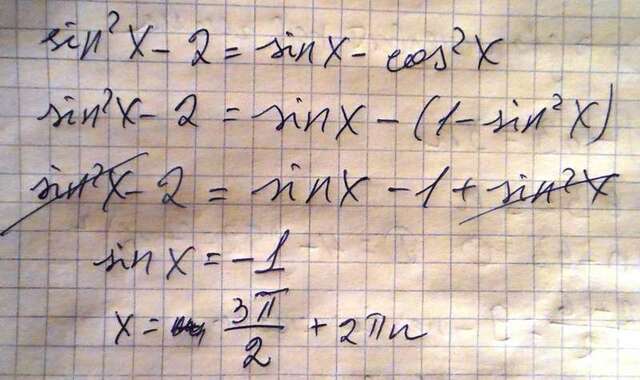 sin²x - 2 = sinx - cos²x
sin²x - 2 = sinx - (1 - sin²x)
sin²x - 2 = sinx - 1 + sin²x
sin x = -1
x = 3π/2 + 2πn